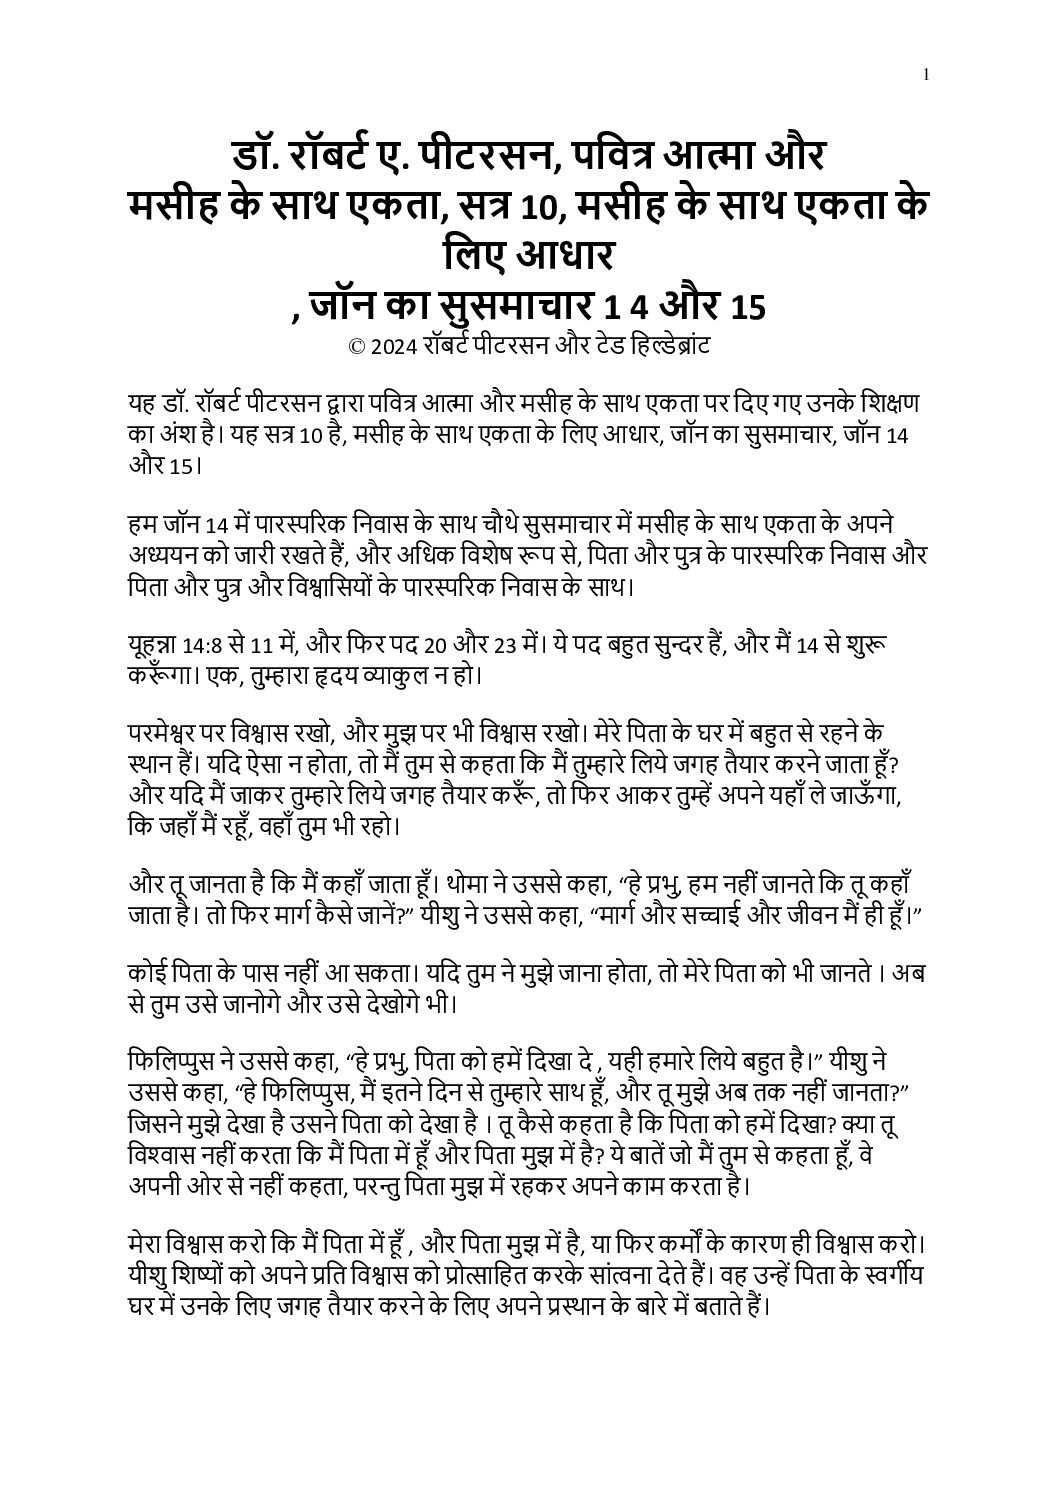 1
डॉ. रॉबर्ट ए. पीटरसन, पवित्र आत्मा और
मसीह के साथ एकता, सत्र 10, मसीह के साथ एकता के
लिए आधार
, जॉन का सुसमाचार 1 4 और 15
© 2024 रॉबर्ट पीटरसन और टेड हिल्डेब्रांट
यह डॉ. रॉबर्ट पीटरसन द्वारा पवित्र आत्मा और मसीह के साथ एकता पर दिए गए उनके शिक्षण
का अंश है। यह सत्र 10 है, मसीह के साथ एकता के लिए आधार, जॉन का सुसमाचार, जॉन 14
और 15।
हम जॉन 14 में पारस्परिक निवास के साथ चौथे सुसमाचार में मसीह के साथ एकता के अपने
अध्ययन को जारी रखते हैं, और अधिक विशेष रूप से, पिता और पुत्र के पारस्परिक निवास और
पिता और पुत्र और विश्वासियों के पारस्परिक निवास के साथ।
यूहन्ना 14:8 से 11 में, और फिर पद 20 और 23 में। ये पद बहुत सुन्दर हैं, और मैं 14 से शुरू
करूँगा। एक, तुम्हारा हृदय व्याकुल न हो।
परमेश्वर पर विश्वास रखो, और मुझ पर भी विश्वास रखो। मेरे पिता के घर में बहुत से रहने के
स्थान हैं। यदि ऐसा न होता, तो मैं तुम से कहता कि मैं तुम्हारे लिये जगह तैयार करने जाता हूँ?
और यदि मैं जाकर तुम्हारे लिये जगह तैयार करूँ, तो फिर आकर तुम्हें अपने यहाँ ले जाऊँगा,
कि जहाँ मैं रहूँ, वहाँ तुम भी रहो।
और तू जानता है कि मैं कहाँ जाता हूँ। थोमा ने उससे कहा, “हे प्रभु, हम नहीं जानते कि तू कहाँ
जाता है। तो फिर मार्ग कैसे जानें?” यीशु ने उससे कहा, “मार्ग और सच्चाई और जीवन मैं ही हूँ।”
कोई पिता के पास नहीं आ सकता। यदि तुम ने मुझे जाना होता, तो मेरे पिता को भी जानते । अब
से तुम उसे जानोगे और उसे देखोगे भी।
फिलिप्पुस ने उससे कहा, “हे प्रभु, पिता को हमें दिखा दे , यही हमारे लिये बहुत है।” यीशु ने
उससे कहा, “हे फिलिप्पुस, मैं इतने दिन से तुम्हारे साथ हूँ, और तू मुझे अब तक नहीं जानता?”
जिसने मुझे देखा है उसने पिता को देखा है । तू कैसे कहता है कि पिता को हमें दिखा? क्या तू
विश्वास नहीं करता कि मैं पिता में हूँ और पिता मुझ में है? ये बातें जो मैं तुम से कहता हूँ, वे
अपनी ओर से नहीं कहता, परन्तु पिता मुझ में रहकर अपने काम करता है।
मेरा विश्वास करो कि मैं पिता में हूँ , और पिता मुझ में है, या फिर कर्मों के कारण ही विश्वास करो।
यीशु शिष्यों को अपने प्रति विश्वास को प्रोत्साहित करके सांत्वना देते हैं। वह उन्हें पिता के स्वर्गीय
घर में उनके लिए जगह तैयार करने के लिए अपने प्रस्थान के बारे में बताते हैं।